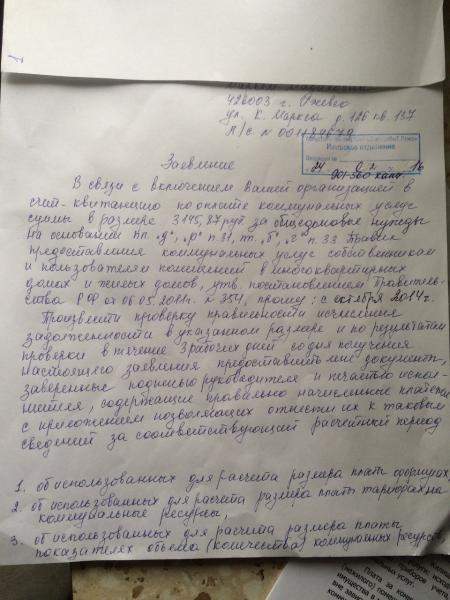 426003 г. Ижевск
ул. К. Маркса д. 126 кв. 137
Л/с. №
Ижевское отделение
24 02 16
Заявление
В связи с включением вашей организацией в
счет-квитанцию по оплате коммунальных услуг
суммы в размере 3145,87 руб за общедомовые нужды
на основании пп. "д", "р" п 31, пп. "б", "г" п. 33 Правил
предоставления коммунальных услуг собственникам
и пользователям помещений в многоквартирных
домах и жилых домов, утв. постановлением Правитель-
ства РФ от 06.05.2011г. № 354, прошу: с октября 2014г.
Произвести проверку правильности исчисления
задолженности в указанном размере и по результатам
проверки в течение 3 рабочих дней со дня получения
настоящего заявления предоставить мне документы,
заверенные подписью руководителя и печатью испол-
нителя, содержащие правильно начисленные платежи
с приложением позволяющих отнести их к таковым
сведений за соответствующий расчетный период
1. об использованных для расчета размера платы
2. об использованных для расчета размера платы тарифах на
коммунальные ресурсы,
3. об использованных для расчета размера платы
показателях объема (количества) коммунальных ресурсов,